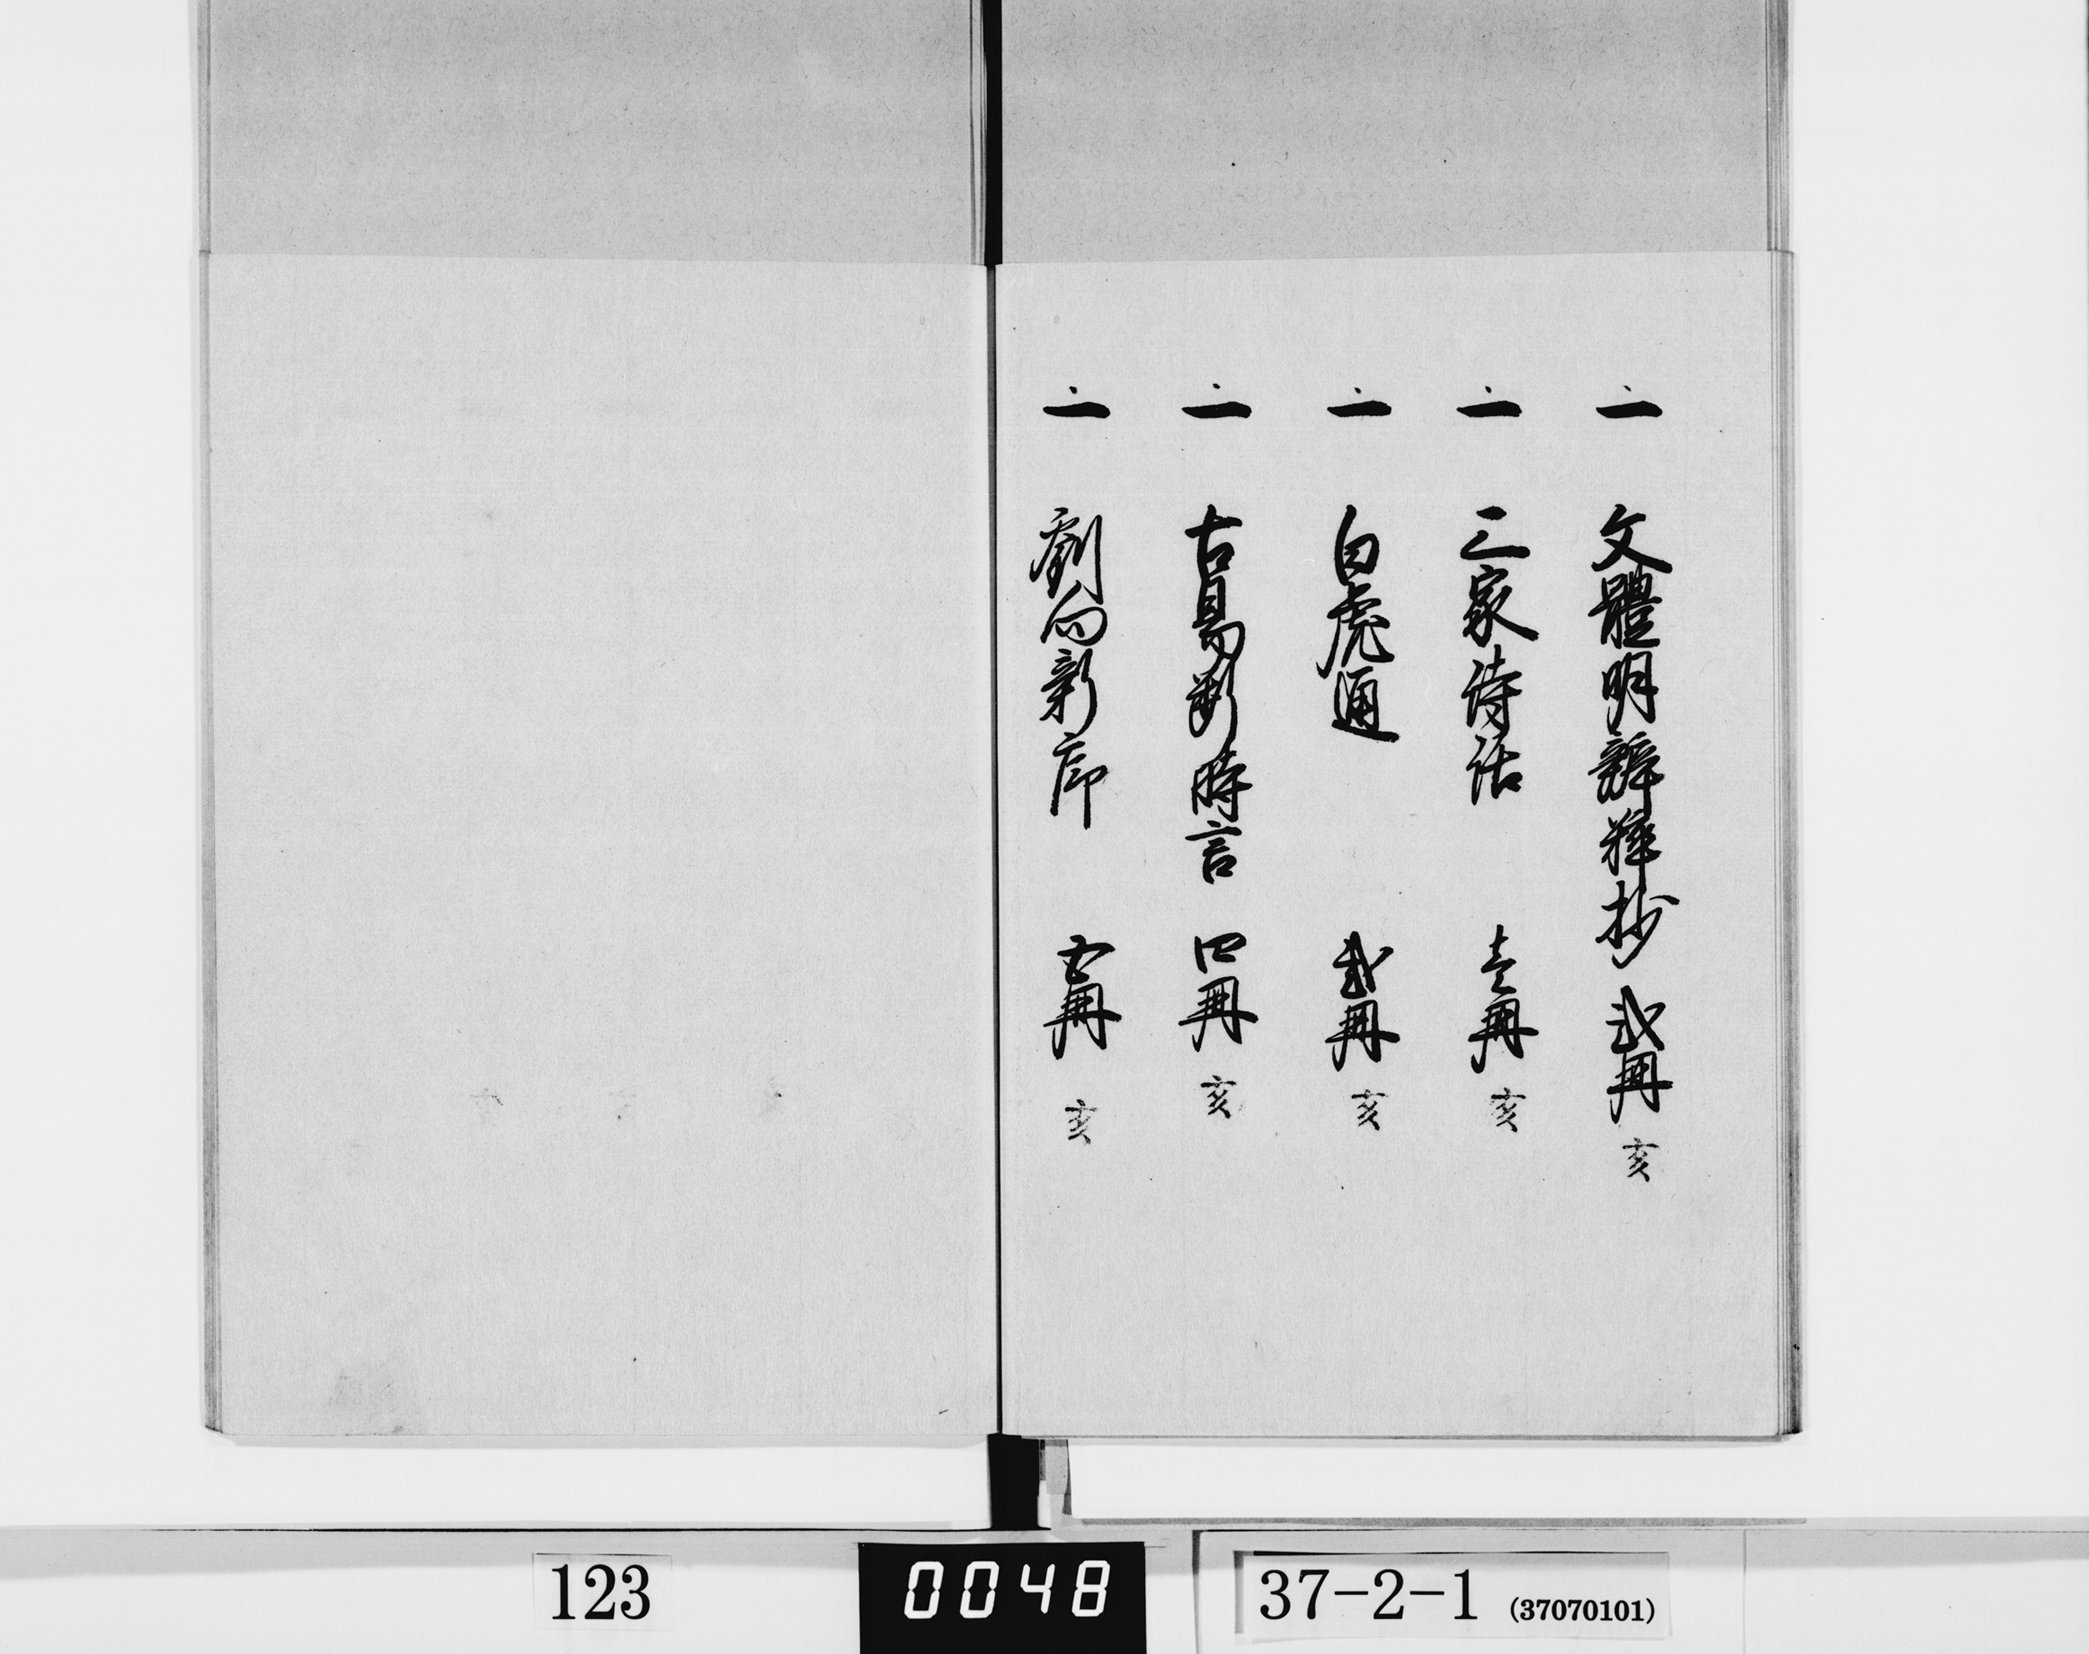 一 文體明辨粹抄 弐冊 亥
一 三家詩話 壱冊 亥
一 白虎通 弐冊 亥
一 古易断時言 四冊 亥
一 劉向新序 五冊 亥
123
0048
37-2-1 (37070101)